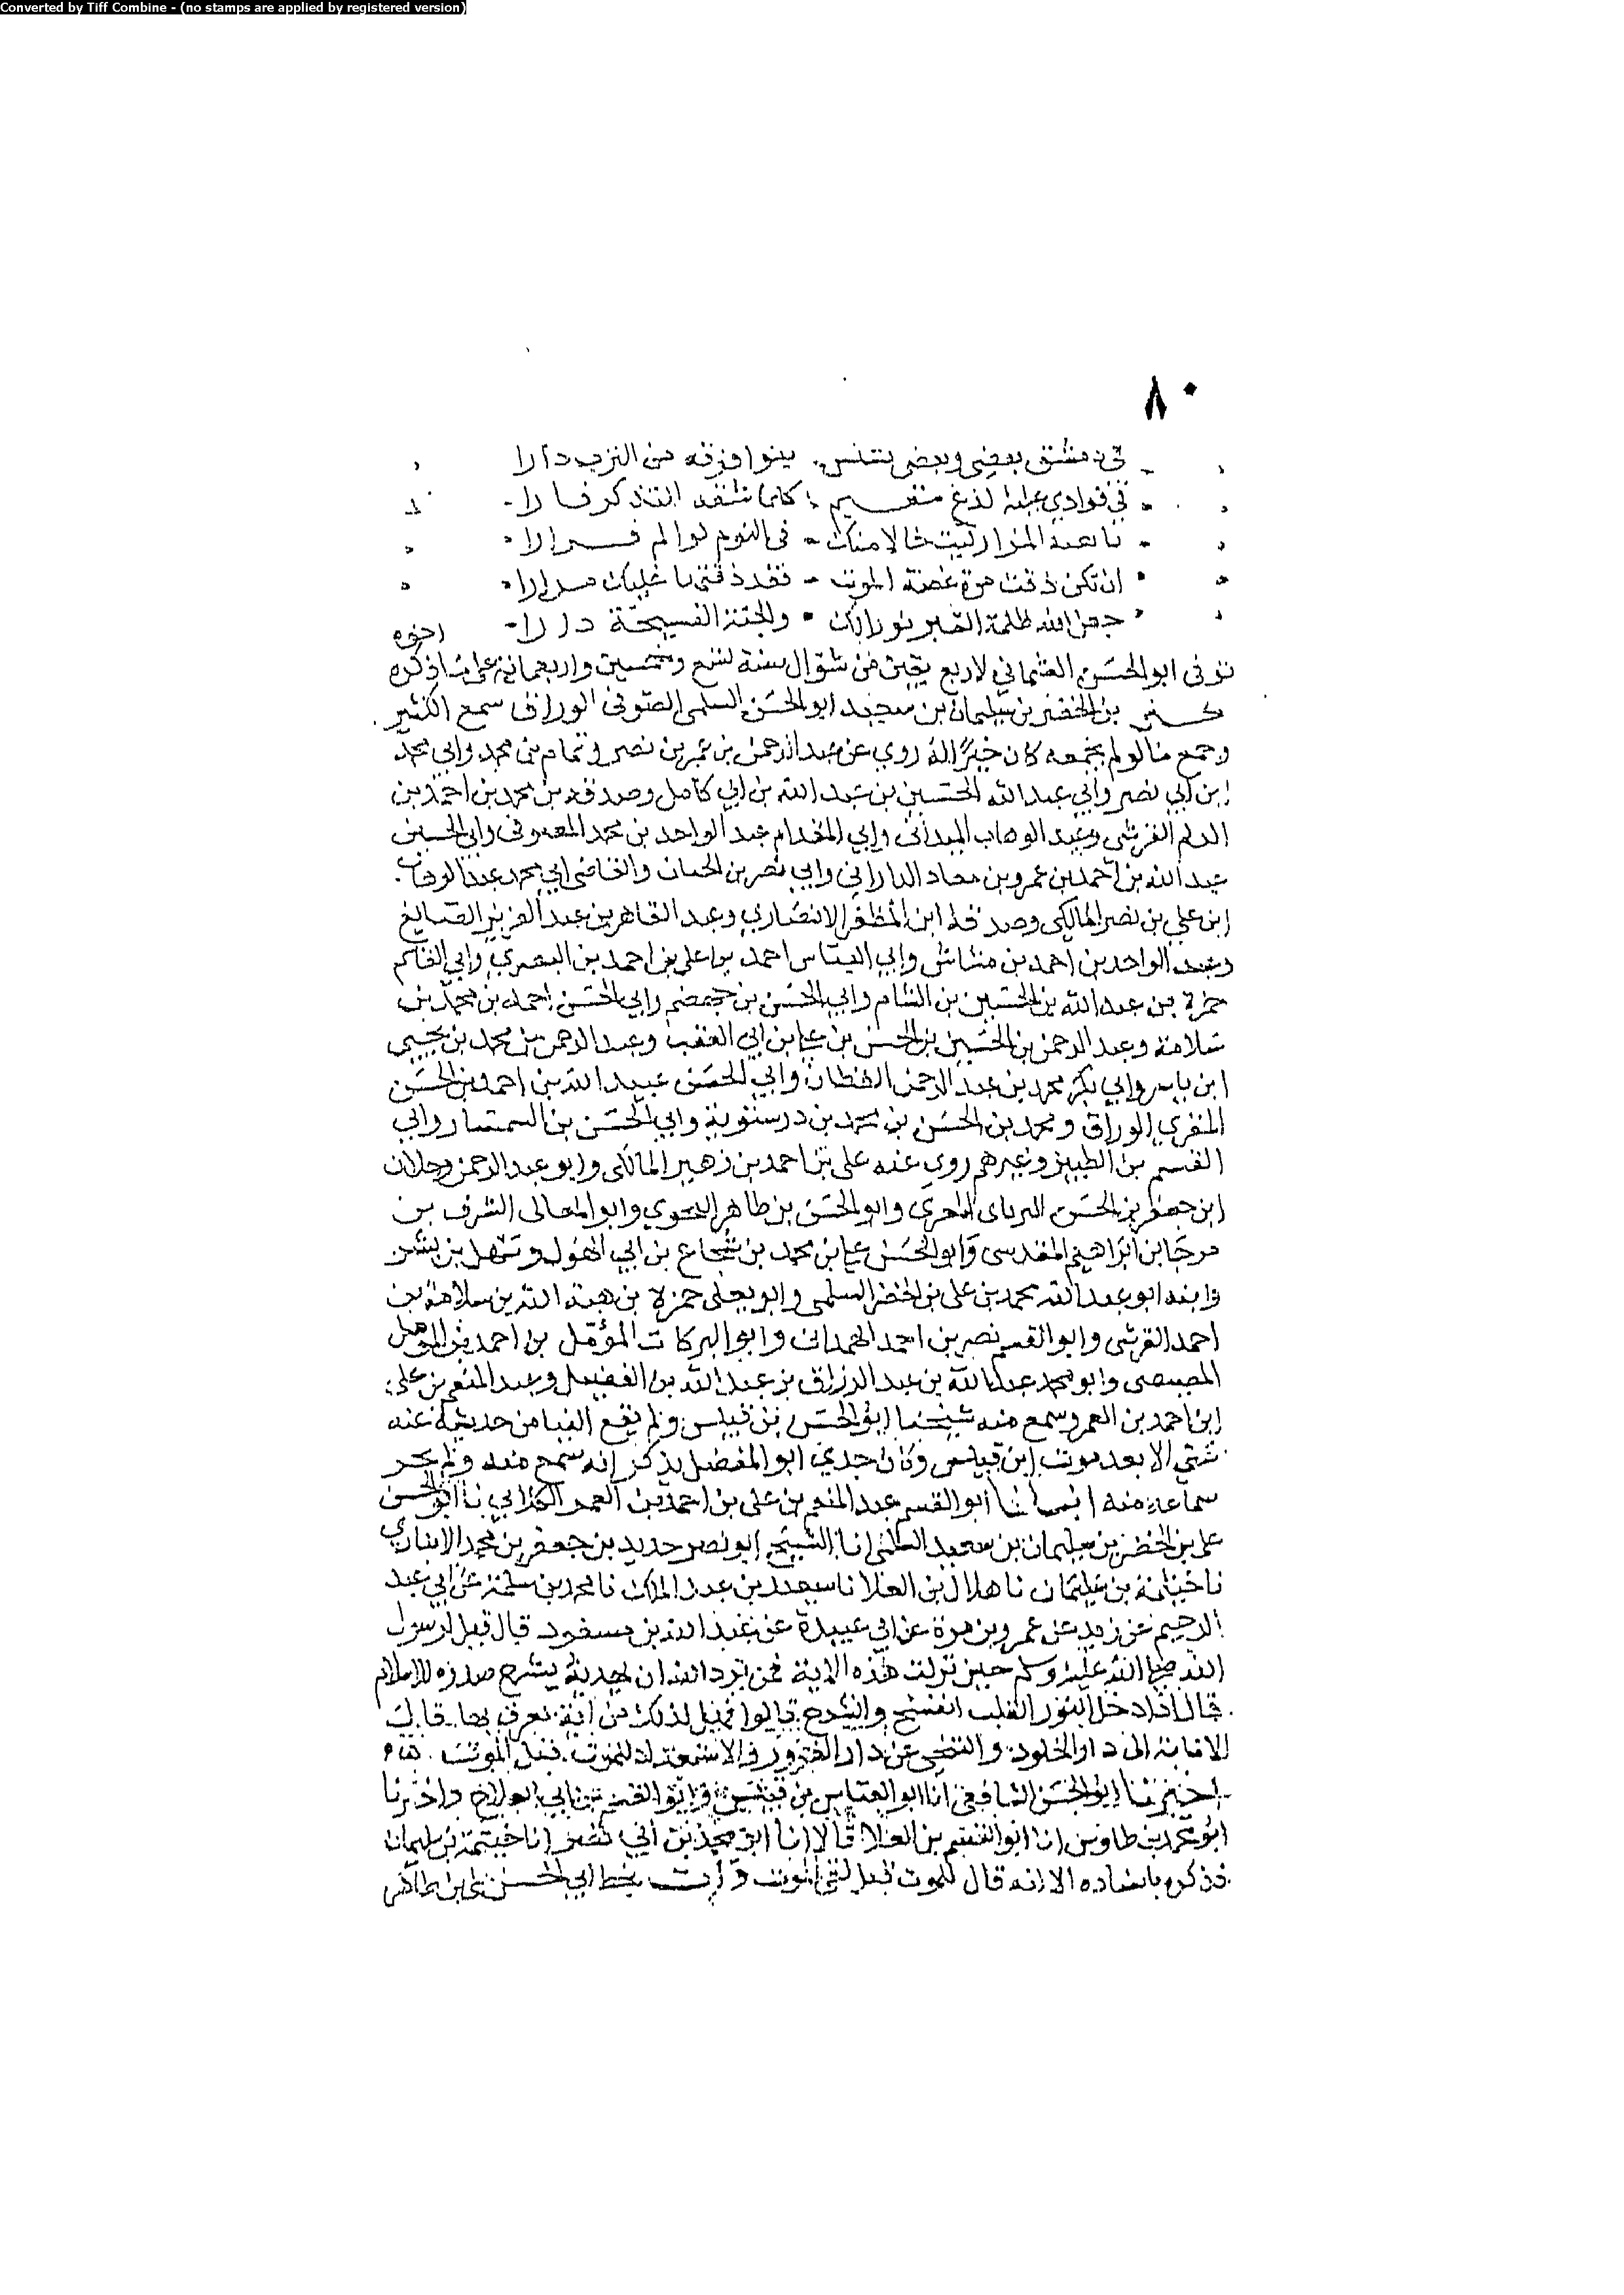 Converted by Tiff Combine - (no stamps are applied by registered version)
٨٠
في دمشق بعضي وبعض بتنيس بينوا فرقه من الترب دارا
في فوادي عليك لذع مقيم كلما شفه التذكر فارا
يا بعيد المزار ليت خيالا منك في النوم لو الم فزارا
ان تكن ذقت مرة غصة الموت فقد ذقتها عليك مرارا
جعل الله ظلمة القبر نورا لك والجنة الفسيحة دارا
اخوه
توفى ابو الحسن العثماني لاربع بقين من شوال سنة تسع وخمسين واربعمائة على ما ذكره
بن الخضر بن سليمان بن سعيد ابو الحسن السلمى الصوفى الوراق سمع الكثير
وجمع ما لو لم يجمعه كان خيرا له روي عن عبد الرحمن بن عمر بن نصر وتمام بن محمد وابي محمد
ابن ابي نصر وابي عبد الله الحسين بن عبد الله بن ابي كامل وصدقه بن محمد بن احمد بن
الدلم القرشى وعبد الوهاب الميدانى وابي المقدام عبد الواحد بن محمد المعروفى وابي الحسين
عبد الله بن احمد بن عمرو بن معاد الداراني وابي نصر بن الحبان والقاضى ابي محمد عبد الوهاب
ابن علي بن نصر المالكي وصدقه ابن المظفر الانصاري وعبد القاهر بن عبد العزيز الصايغ
وعبد الواحد بن احمد بن مشماش وابي العباس احمد بن على بن احمد بن البصري وابي القاسم
حمزة بن عبد الله بن الحسين بن الشام وابي الحسن بن جهضم وابي الحسن احمد بن محمد بن
سلامة وعبد الرحمن بن الحسين بن الحسن بن علي بن ابي العقب وعبد الرحمن بن محمد بن يحيى
ابن ياسر وابي بكر محمد بن عبد الرحمن القطان وابي الحسن عبيد الله بن احمد بن الحسن
المقري الوراق ومحمد بن الحسن بن محمد بن درستوية وابي الحسن بن السمسار وابي
القسم بن الطبيز وغيرهم روى عنه على بن احمد بن زهير المالكى وابو عبد الرحمن وحلان
ابن جعفر بن الحسن وابو الحسن بن طاهر النحوي وابو المعالى الشرف بن
مرجا بن ابراهيم المقدسى وابو الحسن علي بن محمد بن شجاع بن ابي الهول وسهل بن بشر
وابنه ابو عبد الله محمد بن على بن الخضر السلمى وابو يعلى حمزة بن هبة الله بن سلامة بن
احمد القرشى وابو القسم نصر بن احمد الهمدانى وابو البركات المؤمل بن احمد بن المؤمل
المصيصى وابو محمد عبد الله بن عبد الرزاق بن عبد الله بن الفضيل وعبد المنعم بن على
ابن احمد بن الغمر وسمع منه شيخنا ابو الحسن بن قبيس ولم يقع الينا من حديثه عنه
شي الا بعد موت ابن قبيس وكان جدي ابو المفضل يذكر انه سمع منه ولم نجد
سماعه منه انبانا ابو القسم عبد المنعم بن على بن احمد بن الغمر الكلابي نا ابو الحسن
على بن الخضر بن سليمان بن سعيد السلمى انا الشيخ ابو نصر حديد بن جعفر بن محمد الانباري
نا خيثمة بن سليمان نا هلال بن العلا نا سعيد بن عبد الملك نا محمد بن سلمة عن ابي عبد
الرحيم عن زيد عن عمرو بن مرة عن ابي عبيدة عن عبد الله بن مسعود قال قيل لرسول
الله صلى الله عليه وسلم حين نزلت هذه الاية فمن يرد الله ان يهديه يشرح صدره للاسلام
قال اذا دخل النور القلب انفسح وانشرح قالوا فهل لذلك من اية نعرف بها قال
الانابة الى دار الخلود والتنحى عن دار الغرور والاستعداد للموت قبل الموت
اخبرنا ابو الحسن الشافعى انا ابو العباس بن قبيس وابو القسم بن ابي العلا ح واخبرنا
ابو محمد بن طاوس انا ابو القسم بن العلا قالا انا ابو محمد بن ابي نصر انا خيثمة بن سليمان
فذكره باسناده الا انه قال للموت قبل لقى الموت قرأت بخط ابي الحسن على بن طاهر